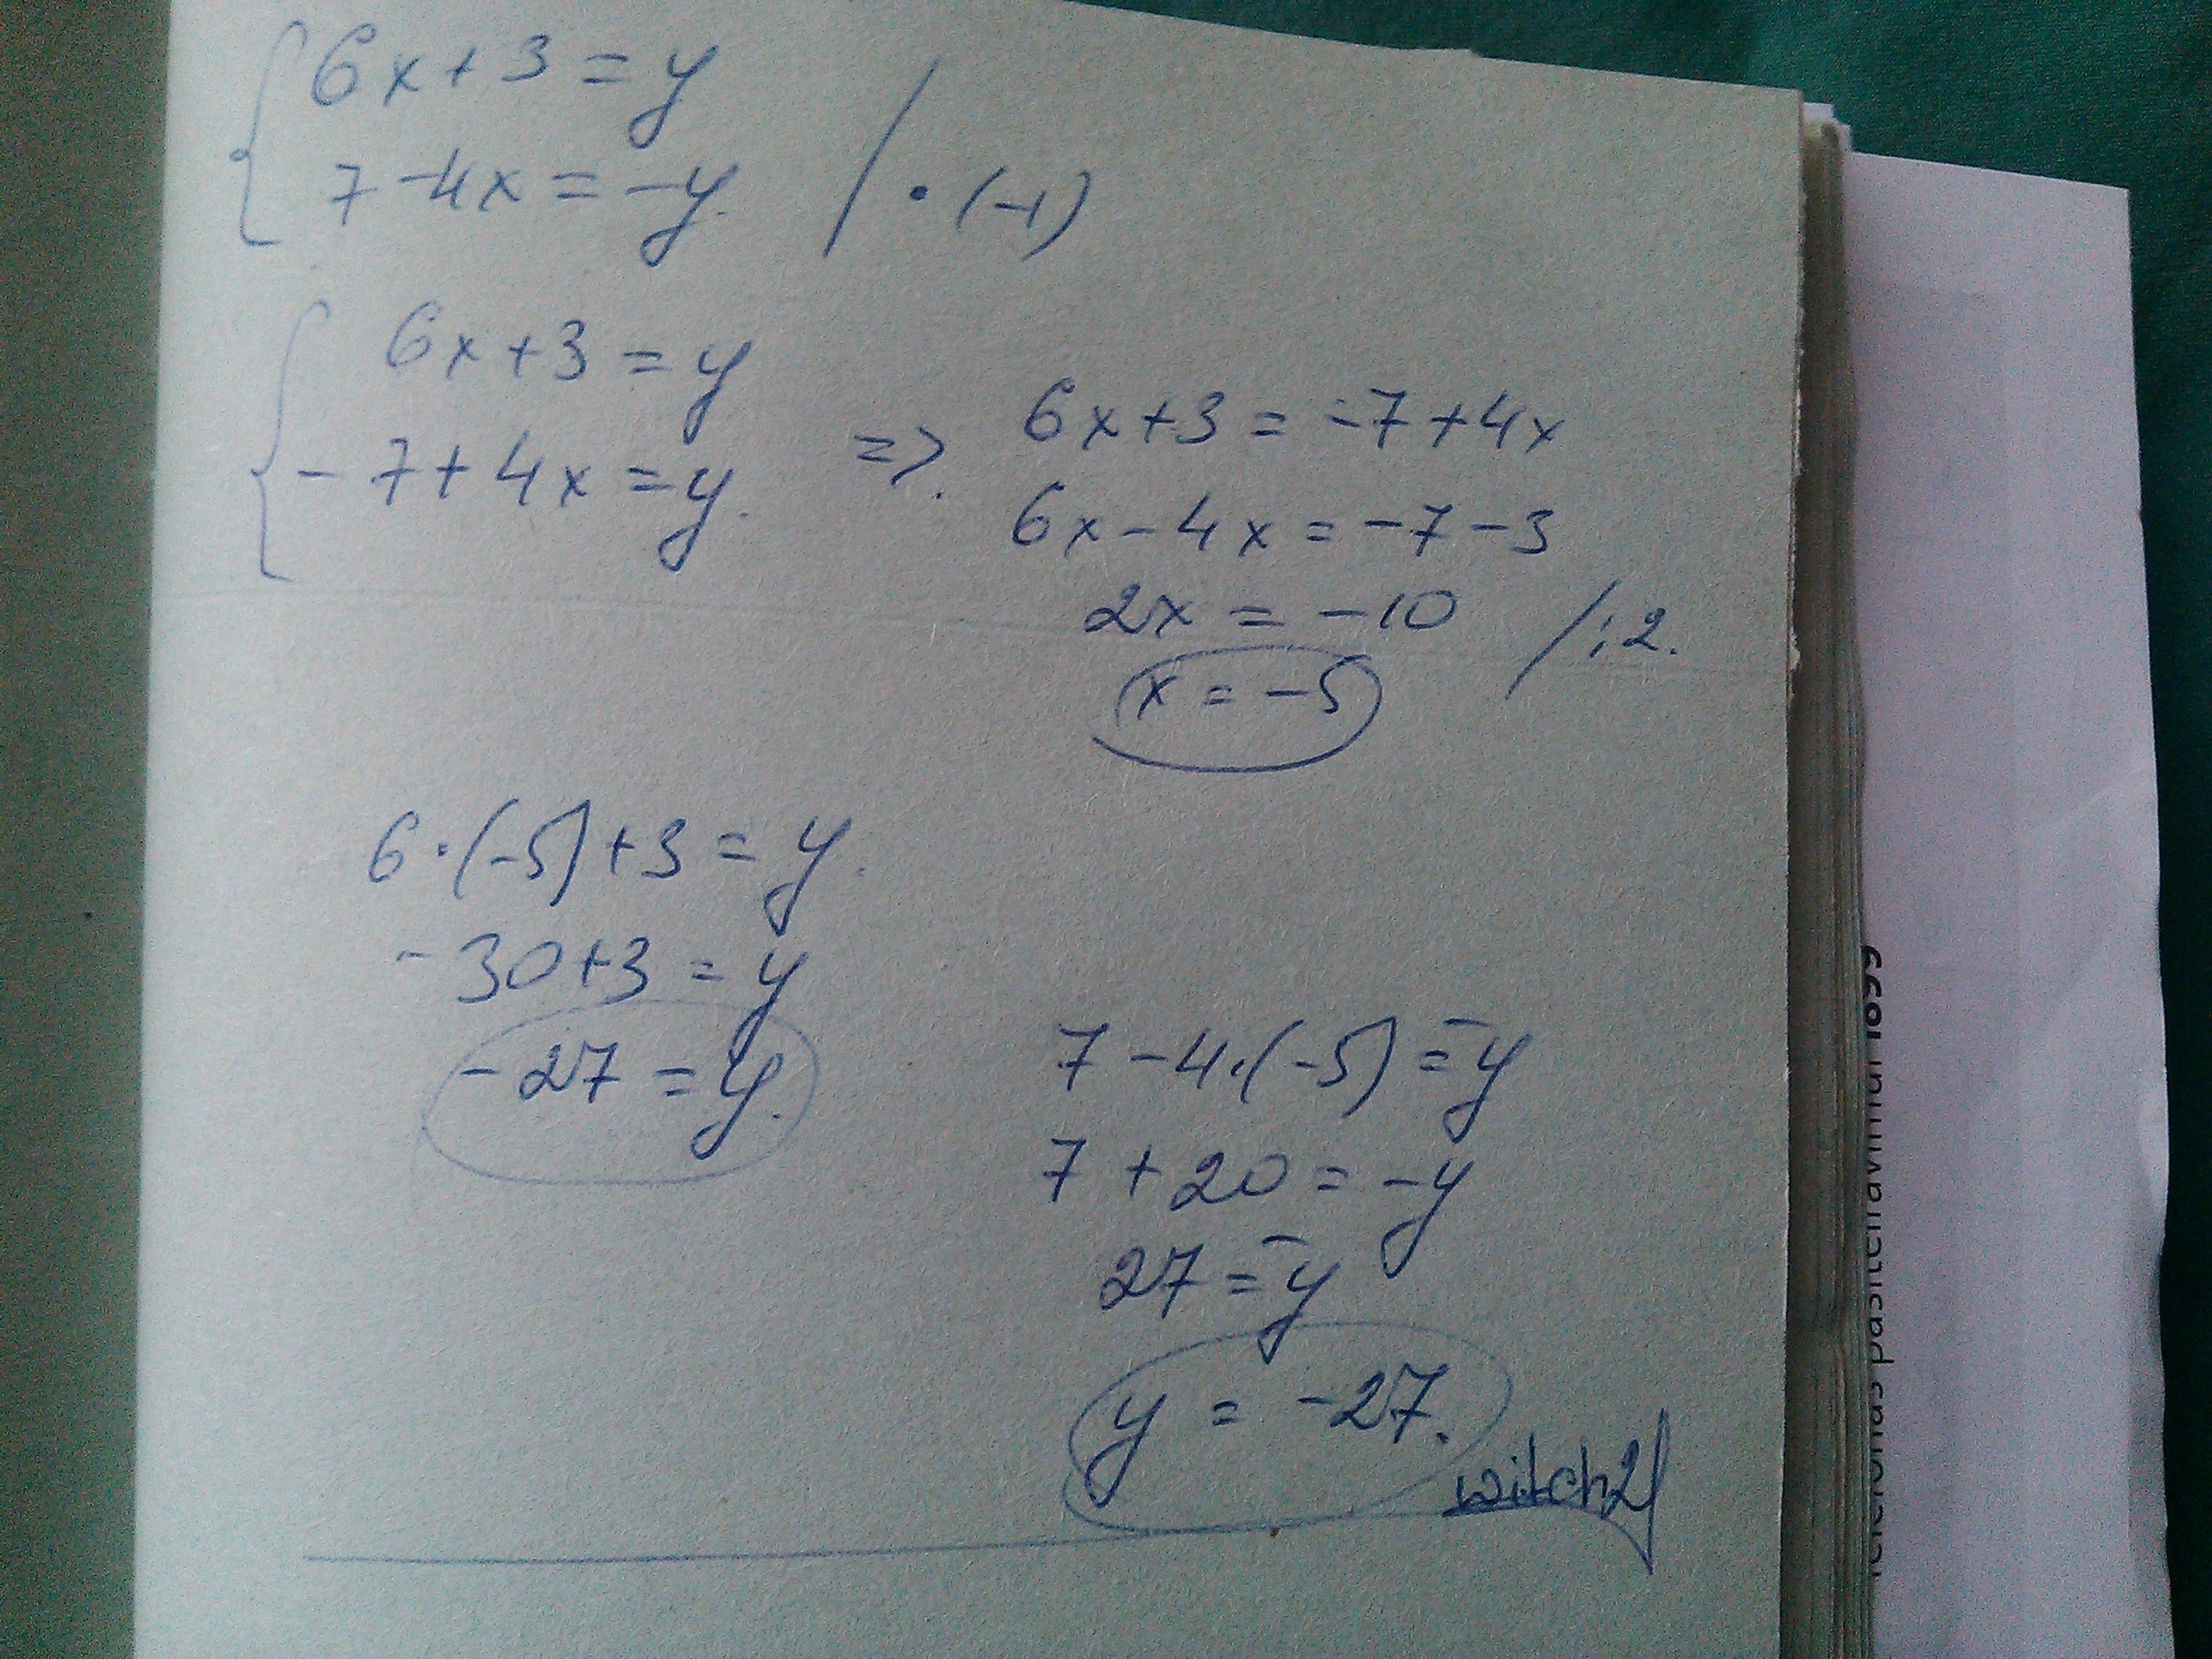 6x+3=y
7-4x=-y. / • (-1)
6x+3=y
-7+4x=y. =>.
6x+3=-7+4x
6x-4x=-7-3
2x=-10 /:2.
x=-5
6·(-5)+3=y.
-30+3=y
-27=y.
7-4·(-5)=-y
7+20=-y
27=-y
y=-27.
witch21
1855